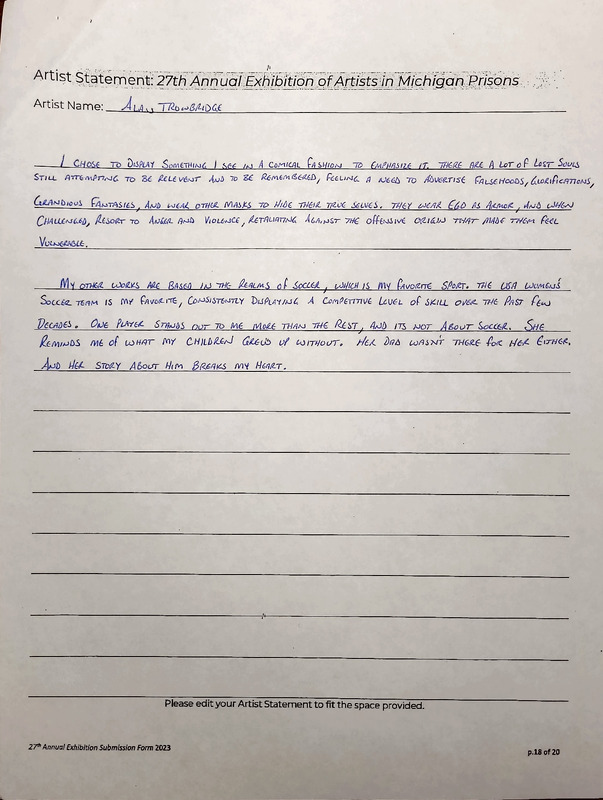 Artist Statement: 27th Annual Exhibition of Artists in Michigan Prisons
Artist Name: ALAN TROWBRIDGE
I CHOSE TO DISPLAY SOMETHING I SEE IN A COMICAL FASHION TO EMPHASIZE IT. THERE ARE A LOT OF LOST SOULS
STILL ATTEMPTING TO BE RELEVENT AND TO BE REMEMBERED, FEELING A NEED TO ADVERTISE FALSEHOODS, GLORIFICATIONS,
GRANDIOUS FANTASIES, AND WEAR OTHER MASKS TO HIDE THEIR TRUE SELVES. THEY WEAR EGO AS ARMOR, AND WHEN
CHALLENGED, RESORT TO ANGER AND VIOLENCE, RETALIATING AGAINST THE OFFENSIVE ORIGIN THAT MADE THEM FEEL
VULNERABLE.
MY OTHER WORKS ARE BASED IN THE REALMS OF SOCCER, WHICH IS MY FAVORITE SPORT. THE USA WOMEN'S
SOCCER TEAM IS MY FAVORITE, CONSISTENTLY DISPLAYING A COMPETITIVE LEVEL OF SKILL OVER THE PAST FEW
DECADES. ONE PLAYER STANDS OUT TO ME MORE THAN THE REST, AND ITS NOT ABOUT SOCCER. SHE
REMINDS ME OF WHAT MY CHILDREN GREW UP WITHOUT. HER DAD WASN'T THERE FOR HER EITHER.
AND HER STORY ABOUT HIM BREAKS MY HEART.
Please edit your Artist Statement to fit the space provided.
27th Annual Exhibition Submission Form 2023
p.18 of 20